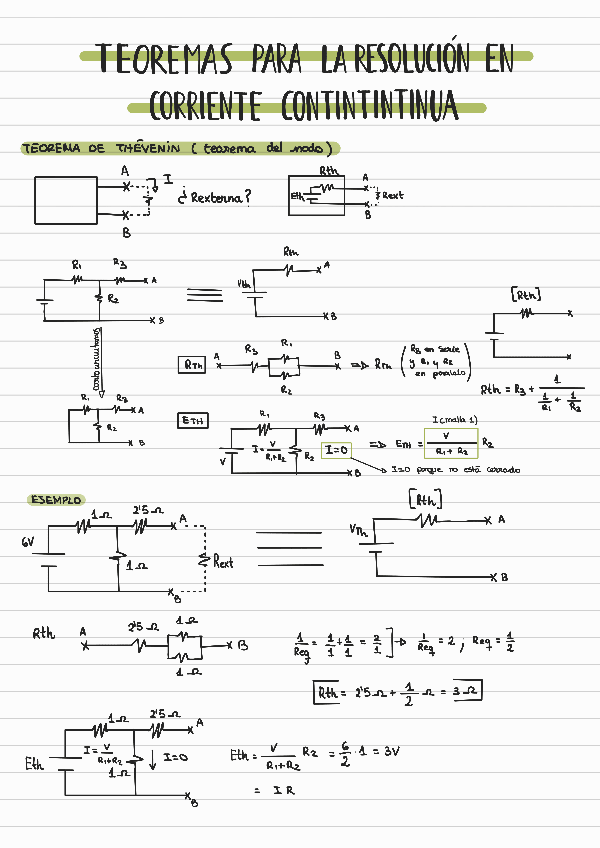 TEOREMAS PARA LA RESOLUCIÓN EN
CORRIENTE CONTINTINTINUA
TEOREMA DE THÉVENIN (teorema del nodo)
A
I
¿Rexterna?
B
Rth
Eth
A
Rext
B
R1 R3
A
R2
B
Rth
Vth
A
B
[Rth]
cortocircuitamos
RTH
A R3 R1 B
R2
=> RTH (R3 en serie
y R1 y R2
en paralelo)
Rth = R3 + 1 / (1/R1 + 1/R2)
R1 R3
A
R2
B
ETH
R1 R3 A
V
I = V/(R1+R2)
R2
I=0
B
I(malla 1)
=> ETH = V/(R1+R2) R2
I=0 porque no está cerrado
EJEMPLO
1Ω 2'5Ω A
6V
1Ω
Rext
B
[Rth]
VTh
A
B
Rth
A 2'5Ω 1Ω B
1Ω
1/Req = 1/1 + 1/1 = 2/1 ] → 1/Req = 2 ; Req = 1/2
Rth = 2'5Ω + 1/2 Ω = 3Ω
1Ω 2'5Ω A
Eth
I = V/(R1+R2)
1Ω
I=0
B
Eth = V/(R1+R2) R2 = 6/2 · 1 = 3V
= I R